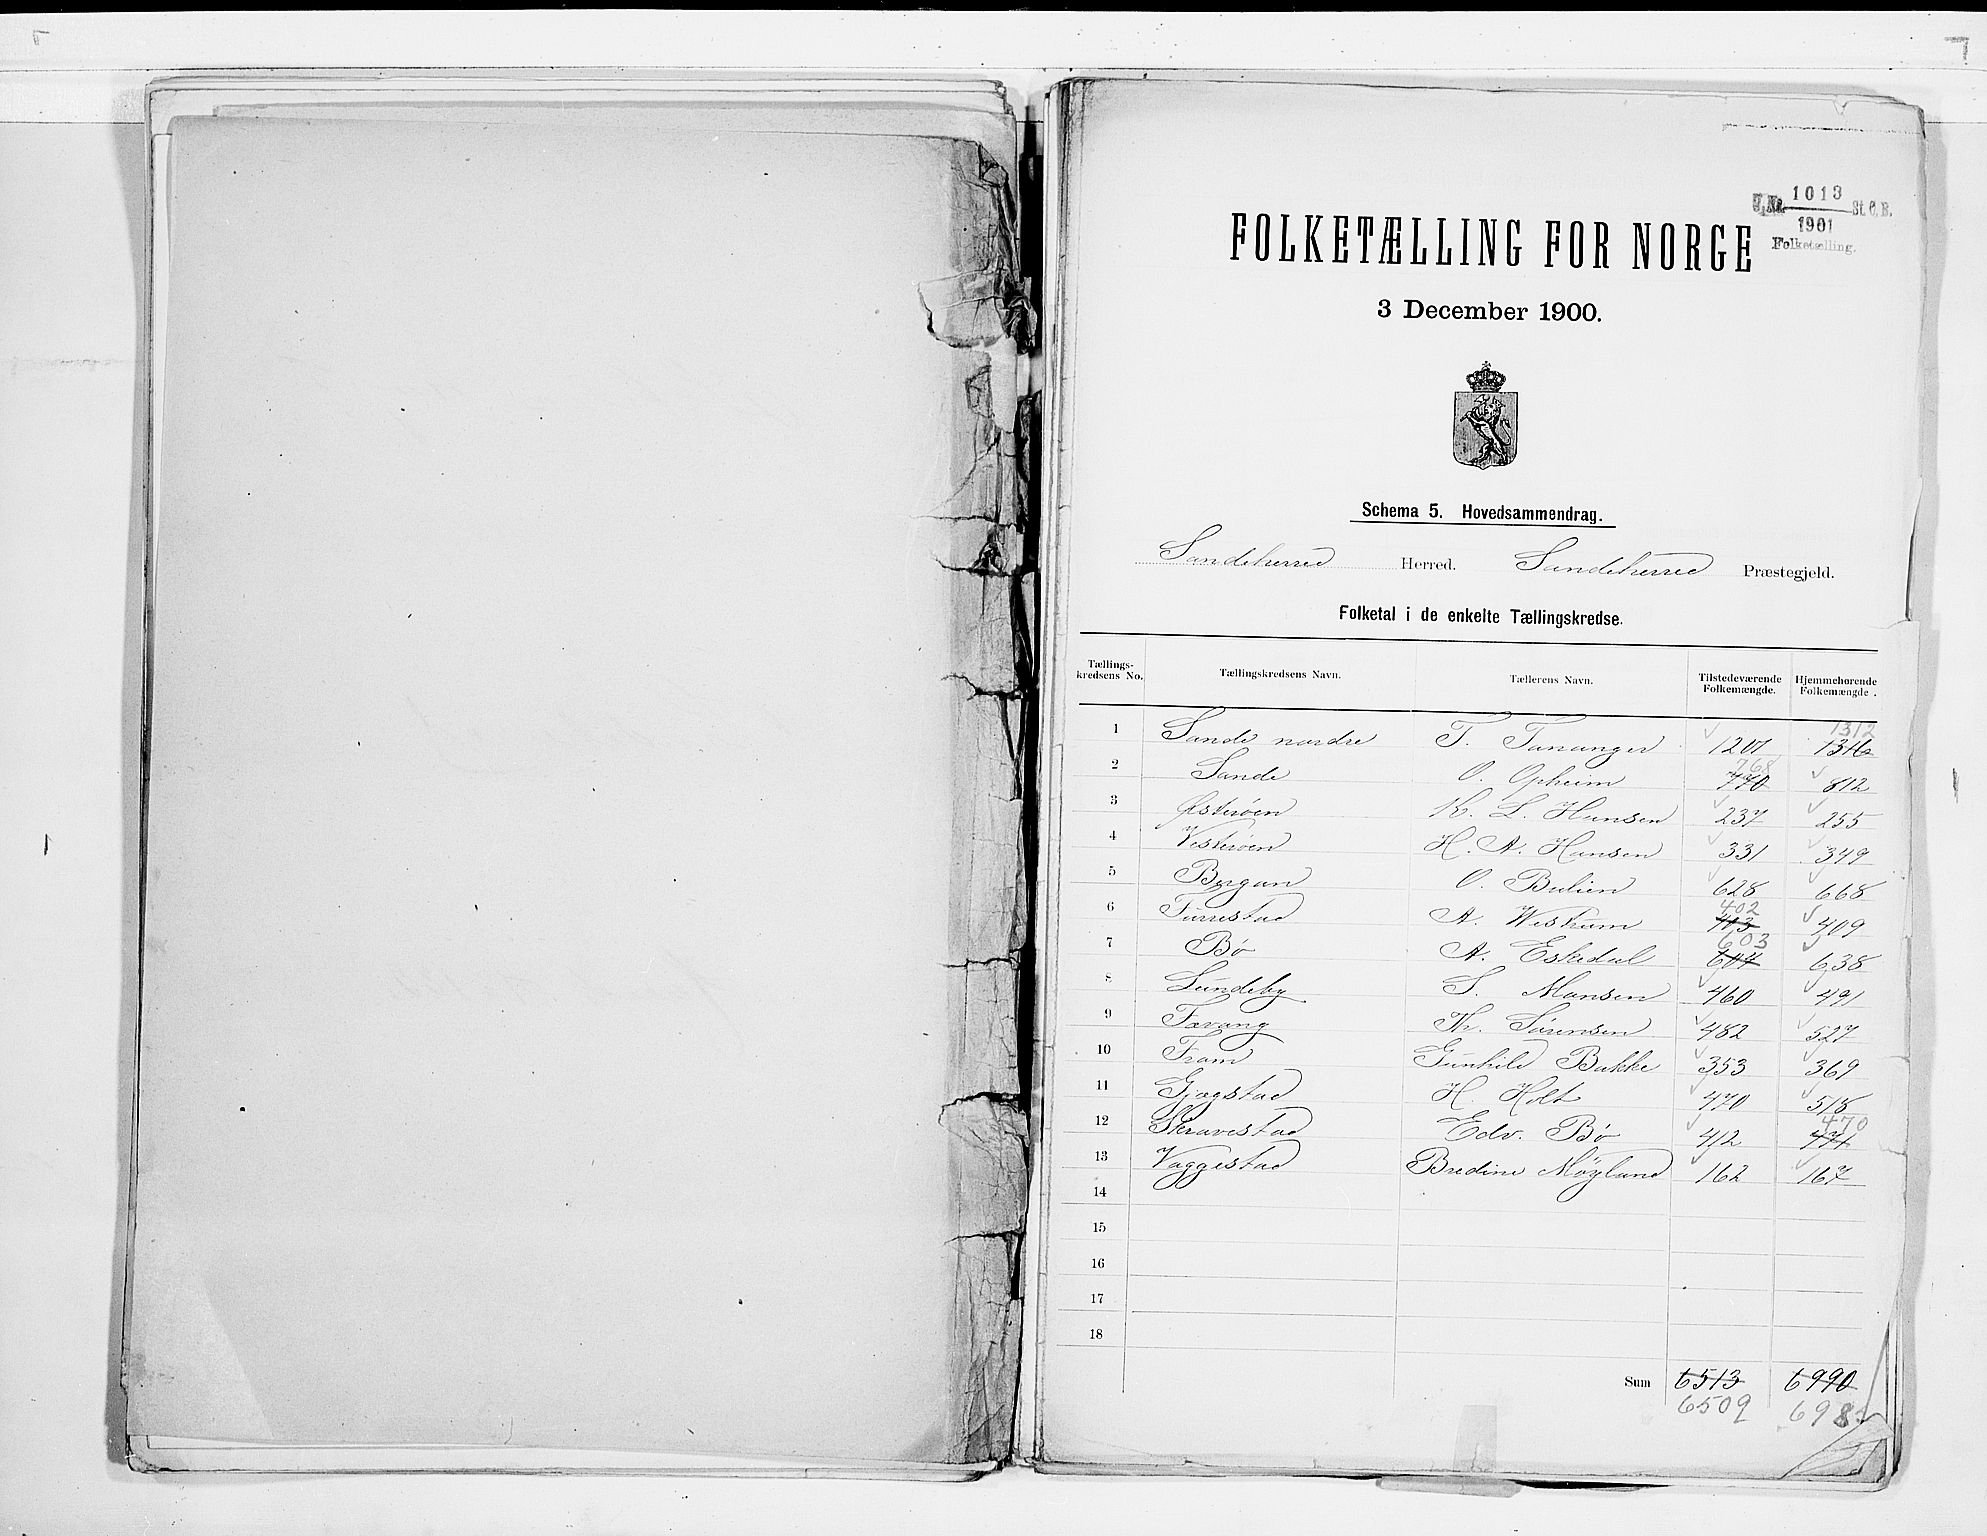 J.No. 1013 St. C. B.
1901
Folketælling.
FOLKETÆLLING FOR NORGE
3 December 1900.
Schema 5. Hovedsammendrag.
Sandeherred Herred. Sandeherred Præstegjeld.
Folketal i de enkelte Tællingskredse.
Tællings-kredsens No. Tællingskredsens Navn. Tællerens Navn. Tilstedeværende Folkemængde. Hjemmehørende Folkemængde.
1 Sande nordre T. Tananger 1201 1316 1312
2 Sande O. Opheim 770 768 812
3 Østerøen K. L. Hansen 237 255
4 Vesterøen H. A. Hansen 331 349
5 Bergan O. Bulien 628 668
6 Furrestad A. Wistrum 403 402 409
7 Bø A. Eskedal 604 603 638
8 Lundeby S. Monsen 460 491
9 Fævang Th. Sørensen 482 527
10 Fram Gunhild Bakke 353 369
11 Gjøgstad H. Holt 470 518
12 Skravestad Edv. Bø 412 471 470
13 Vaggestad Bredine Møyland 162 167
14
15
16
17
18
Sum 6513 6990
6509 698